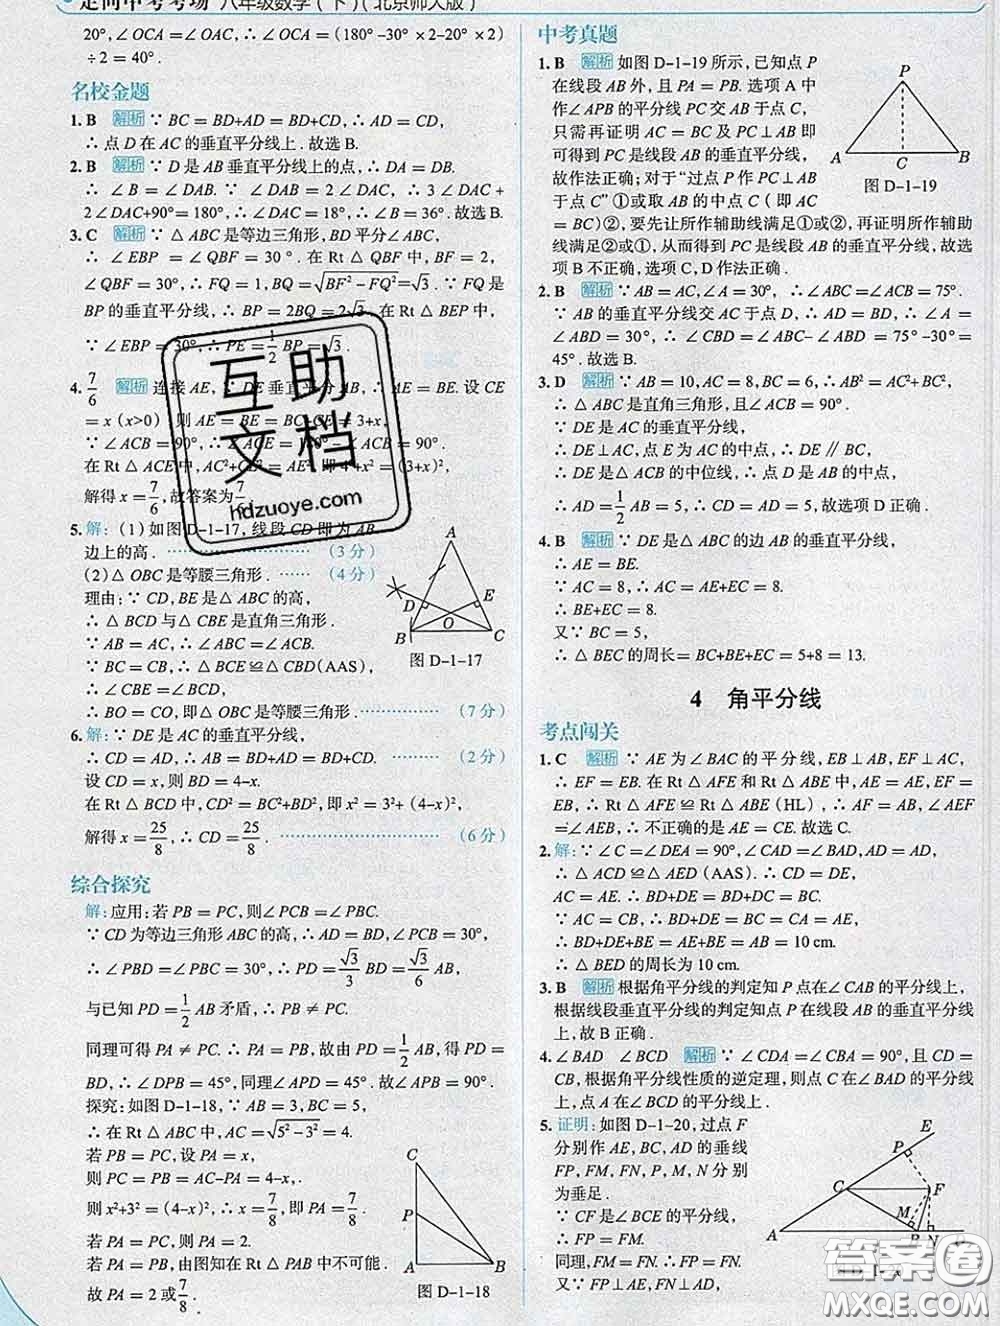 走向中考考场 八年级数学（下）（北京师大版）
20°,∠OCA=∠OAC,∴∠OCA=(180°-30°×2-20°×2)
÷2=40°.
名校金题
1. B 解析 ∵BC=BD+AD=BD+CD,∴AD=CD,
∴点D在AC的垂直平分线上.故选B.
2. B 解析 ∵D是AB垂直平分线上的点,∴DA=DB.
∴∠B=∠DAB.∵∠DAB=2∠DAC,∴3∠DAC+2
∠DAC+90°=180°,∴∠DAC=18°,∴∠B=36°.故选B.
3. C 解析 ∵△ABC是等边三角形,BD平分∠ABC,
∴∠EBP=∠QBF=30°.在Rt△QBF中,BF=2,
∠QBF=30°,∴FQ=1,BQ=√(BF²-FQ²)=√3.∵FQ是
BP的垂直平分线,∴BP=2BQ=2√3.在Rt△BEP中,
∵∠EBP=30°,∴PE=1/2 BP=√3.
4. 7/6 解析 连接AE,∵DE垂直平分AB,∴AE=BE.设CE
=x(x>0),则AE=BE=BC+CE=3+x,
∵∠ACB=90°,∴∠ACE=180°-∠ACB=90°.
在Rt△ACE中,AC²+CE²=AE²,即4²+x²=(3+x)²,
解得x=7/6,故答案为7/6.
5. 解:(1)如图D-1-17,线段CD即为AB
边上的高.…………(3分)
(2)△OBC是等腰三角形.…………(4分)
理由:∵CD,BE是△ABC的高,
∴△BCD与△CBE是直角三角形.
∵AB=AC,∴∠ABC=∠ACB.
∵BC=CB,∴△BCE≌△CBD(AAS),
∴∠CBE=∠BCD,
∴BO=CO,即△OBC是等腰三角形.…………(7分)
A
D
E
O
B
C
图D-1-17
6. 解:∵DE是AC的垂直平分线,
∴CD=AD,∴AB=BD+AD=BD+CD.…………(2分)
设CD=x,则BD=4-x.
在Rt△BCD中,CD²=BC²+BD²,即x²=3²+(4-x)²,
解得x=25/8,∴CD=25/8.…………(6分)
综合探究
解:应用:若PB=PC,则∠PCB=∠PBC.
∵CD为等边三角形ABC的高,∴AD=BD,∠PCB=30°,
∴∠PBD=∠PBC=30°,∴PD=√3/3 BD=√3/6 AB,
与已知PD=1/2 AB矛盾,∴PB≠PC.
同理可得PA≠PC.∴PA=PB,故由PD=1/2 AB,得PD=
BD,∴∠DPB=45°,同理∠APD=45°.故∠APB=90°.
探究:如图D-1-18,∵AB=3,BC=5,
∴在Rt△ABC中,AC=√(5²-3²)=4.
若PB=PC,设PA=x,
则PC=PB=AC-PA=4-x,
则x²+3²=(4-x)²,∴x=7/8,即PA=7/8.
若PA=PC,则PA=2.
若PA=PB,由图知在Rt△PAB中不可能.
故PA=2或7/8.
C
P
A
B
图D-1-18
中考真题
1. B 解析 如图D-1-19所示,已知点P
在线段AB外,且PA=PB.选项A中
作∠APB的平分线PC交AB于点C,
只需再证明AC=BC及PC⊥AB即
可得到PC是线段AB的垂直平分线,
故作法正确;对于“过点P作PC⊥AB
于点C”①或取AB的中点C(即AC
=BC)②,要先让所作辅助线满足①或②,再证明所作辅助
线满足②或①,从而得到PC是线段AB的垂直平分线,故选
项B不正确,选项C,D作法正确.
P
A
C
B
图D-1-19
2. B 解析 ∵AB=AC,∠A=30°,∴∠ABC=∠ACB=75°.
∵AB的垂直平分线交AC于点D,∴AD=BD,∴∠A=
∠ABD=30°,∴∠CBD=∠ABC-∠ABD=75°-30°=
45°.故选B.
3. D 解析 ∵AB=10,AC=8,BC=6,∴AB²=AC²+BC²,
∴△ABC是直角三角形,且∠ACB=90°.
∵DE是AC的垂直平分线,
∴DE⊥AC,点E为AC的中点,∴DE∥BC,
∴DE是△ACB的中位线,∴点D是AB的中点,
∴AD=1/2 AB=5,∴CD=AD=5,故选项D正确.
4. B 解析 ∵DE是△ABC的边AB的垂直平分线,
∴AE=BE.
∵AC=8,∴AC=AE+EC=8.
∴BE+EC=8.
又∵BC=5,
∴△BEC的周长=BC+BE+EC=5+8=13.
4 角平分线
考点闯关
1. C 解析 ∵AE为∠BAC的平分线,EB⊥AB,EF⊥AC,
∴EF=EB.在Rt△AFE和Rt△ABE中,AE=AE,EF=
EB,∴Rt△AFE≌Rt△ABE(HL),∴AF=AB,∠AEF
=∠AEB,∴不正确的是AE=CE.故选C.
2. 解:∵∠C=∠DEA=90°,∠CAD=∠BAD,AD=AD,
∴△ACD≌△AED(AAS).∴CD=DE,
AC=AE.∴BD+DE=BD+CD=BC.
∵AC=BC,∴BD+DE=BC=CA=AE,
∴BD+DE+BE=AE+BE=AB=10 cm.
∴△BED的周长为10 cm.
3. B 解析 根据角平分线的判定知P点在∠CAB的平分线上,
根据线段垂直平分线的判定知点P在线段AB的垂直平分线
上,故B正确.
4. ∠BAD ∠BCD 解析 ∵∠CDA=∠CBA=90°,且CD=
CB,根据角平分线性质的逆定理,则点C在∠BAD的平分线
上,点A在∠BCD的平分线上.
5. 证明:如图D-1-20,过点F
分别作AE,BC,AD的垂线
FP,FM,FN,P,M,N分别
为垂足.
∵CF是∠BCE的平分线,
∴FP=FM.
同理,FM=FN.∴FP=FN.
又∵FP⊥AE,FN⊥AD,
E
P
C
F
M
A
B
N
互助
文档
hdzuoye.com
答案圈
MXQE.COM